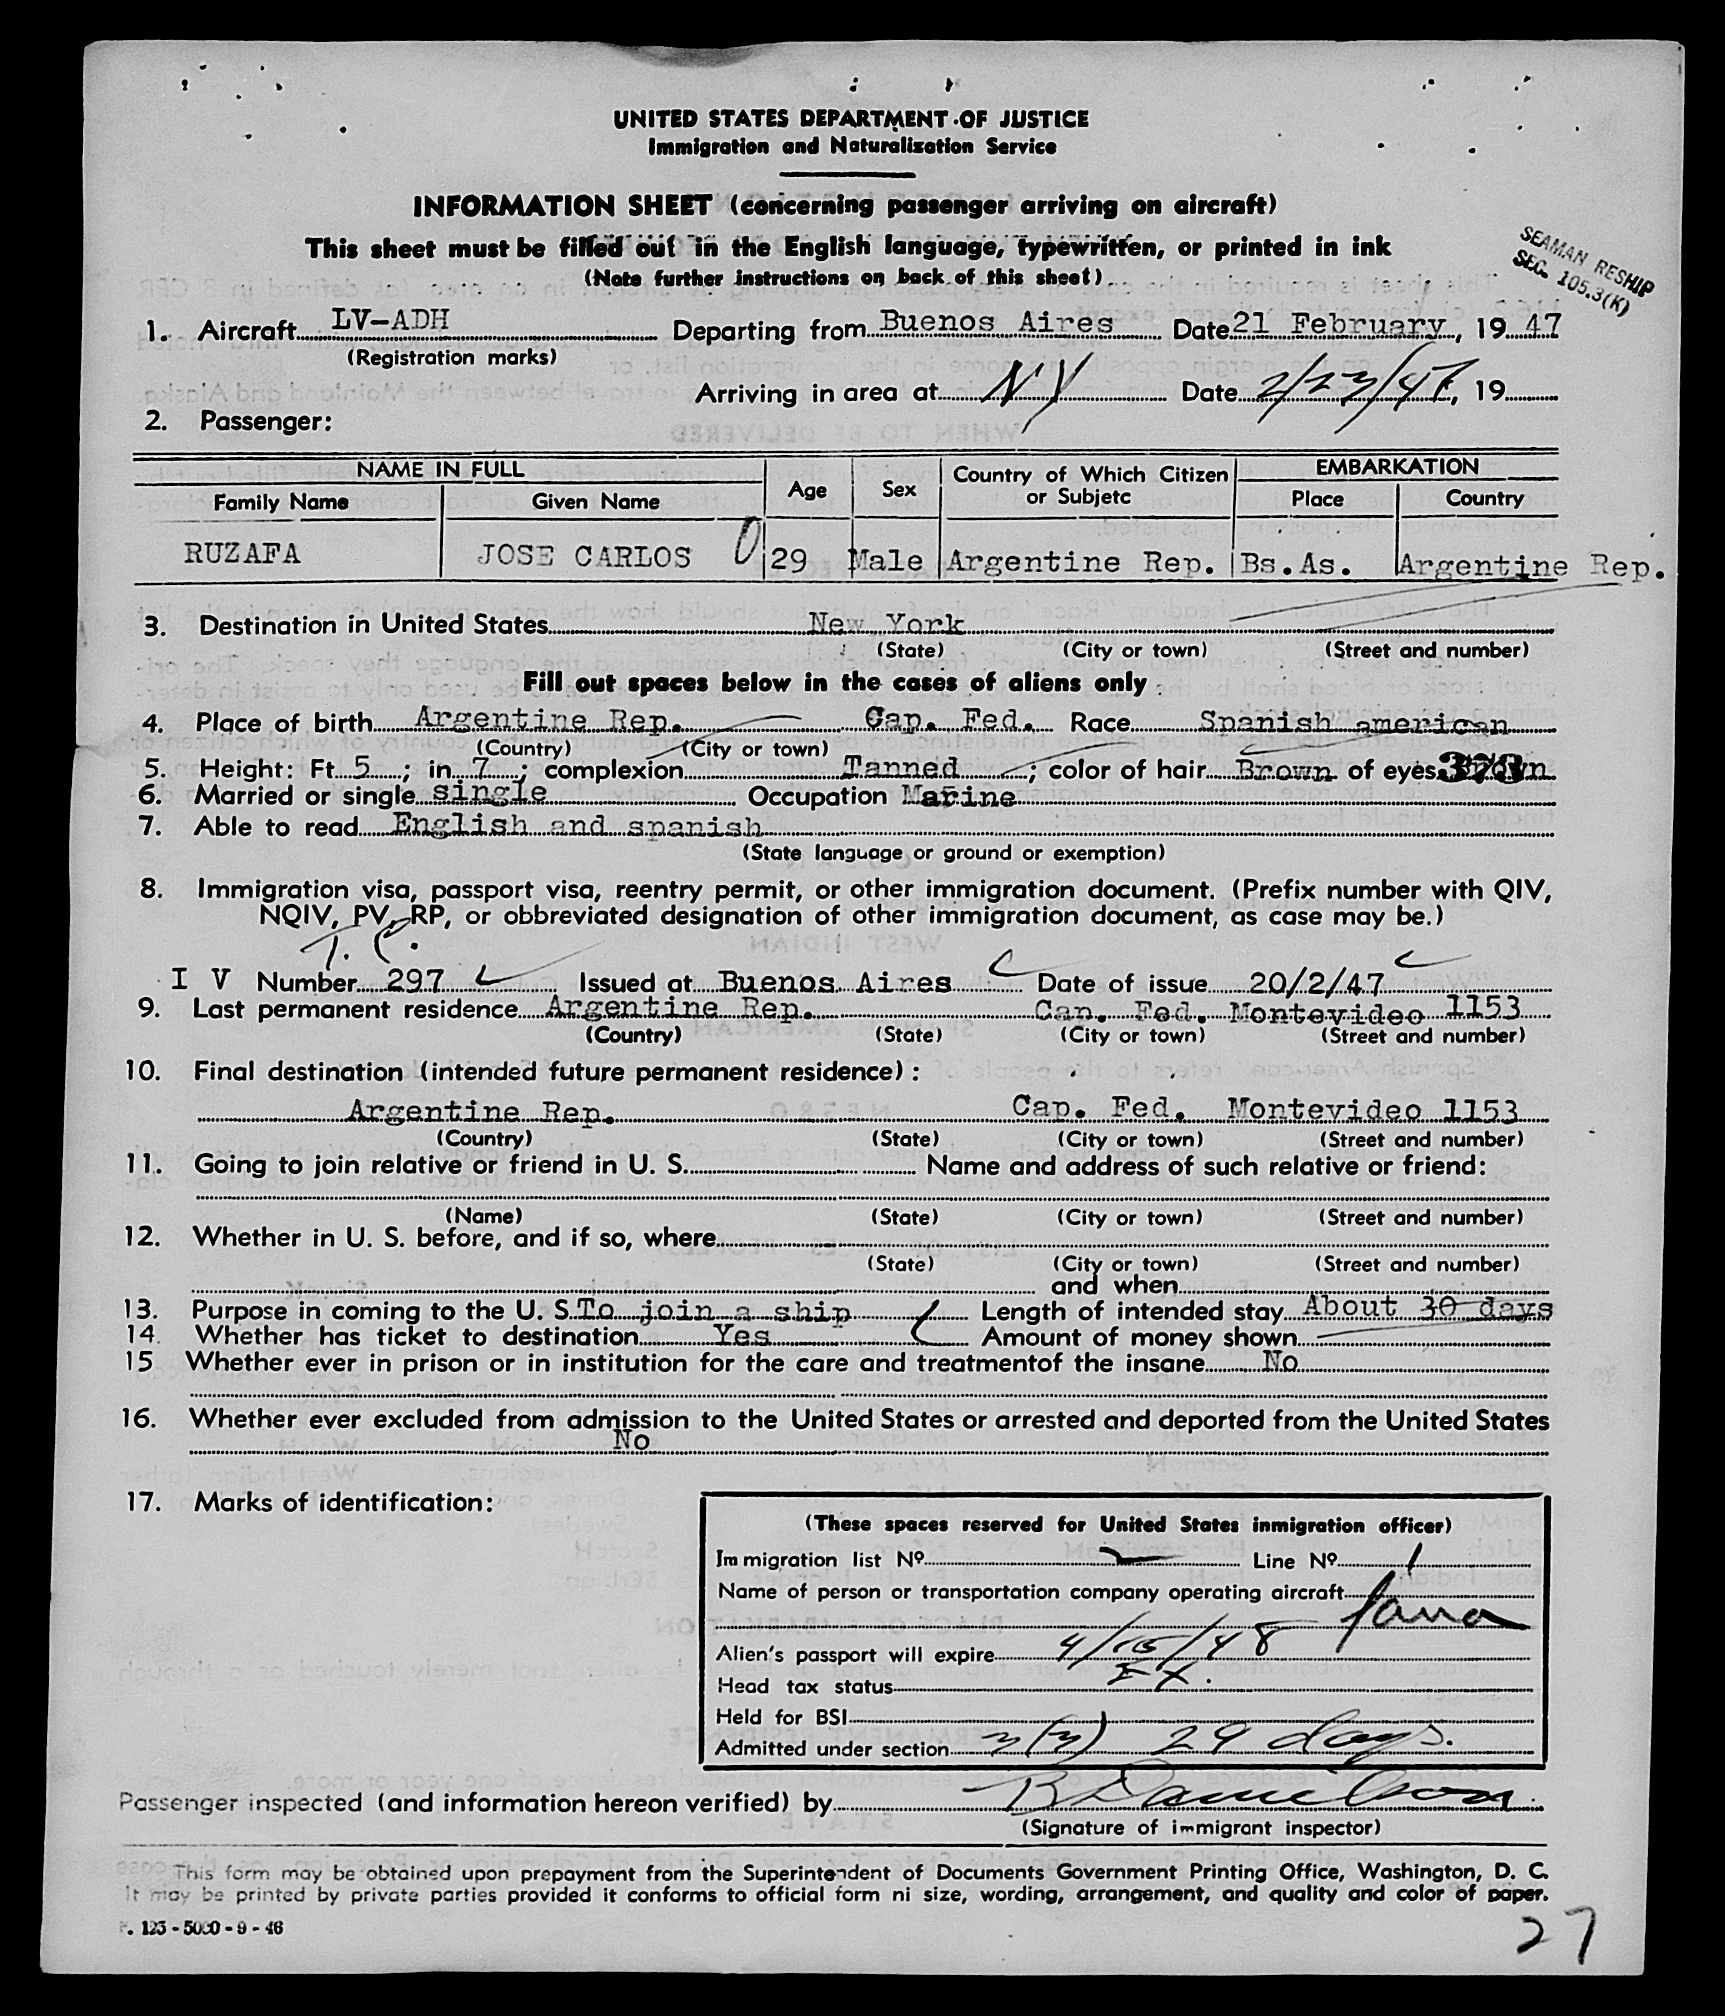 UNITED STATES DEPARTMENT OF JUSTICE
Immigration and Naturalization Service
INFORMATION SHEET (concerning passenger arriving on aircraft)
This sheet must be filled out in the English language, typewritten, or printed in ink
(Note further instructions on back of this sheet)
SEAMAN RESHIP
SEC. 105.3(K)
1. Aircraft LV-ADH Departing from Buenos Aires Date 21 February, 19 47
(Registration marks)
Arriving in area at NY Date 2/23/47, 19
2. Passenger:
NAME IN FULL Age Sex Country of Which Citizen or Subjetc EMBARKATION
Family Name Given Name Place Country
RUZAFA JOSE CARLOS 0 29 Male Argentine Rep. Bs.As. Argentine Rep.
3. Destination in United States New York
(State) (City or town) (Street and number)
Fill out spaces below in the cases of aliens only
4. Place of birth Argentine Rep. Cap. Fed. Race Spanish american
(Country) (City or town)
5. Height: Ft 5; in. 7; complexion Tanned; color of hair Brown of eyes Brown 373
6. Married or single single Occupation Marine
7. Able to read English and spanish
(State language or ground or exemption)
8. Immigration visa, passport visa, reentry permit, or other immigration document. (Prefix number with QIV,
NQIV, PV, RP, or obbreviated designation of other immigration document, as case may be.)
T. C.
I V Number 297 Issued at Buenos Aires Date of issue 20/2/47
9. Last permanent residence Argentine Rep. Cap. Fed. Montevideo 1153
(Country) (State) (City or town) (Street and number)
10. Final destination (intended future permanent residence) :
Argentine Rep. Cap. Fed. Montevideo 1153
(Country) (State) (City or town) (Street and number)
11. Going to join relative or friend in U. S. Name and address of such relative or friend:
(Name) (State) (City or town) (Street and number)
12. Whether in U. S. before, and if so, where
(State) (City or town) (Street and number)
and when
13. Purpose in coming to the U. S. To join a ship Length of intended stay About 30 days
14. Whether has ticket to destination Yes Amount of money shown
15 Whether ever in prison or in institution for the care and treatmentof the insane No
16. Whether ever excluded from admission to the United States or arrested and deported from the United States
No
17. Marks of identification:
(These spaces reserved for United States inmigration officer)
Immigration list Nº 2 Line Nº 1
Name of person or transportation company operating aircraft
fama
Alien's passport will expire 4/15/48
Head tax status EX.
Held for BSI
Admitted under section 3(2) 29 days.
Passenger inspected (and information hereon verified) by B Danielson
(Signature of immigrant inspector)
This form may be obtained upon prepayment from the Superintendent of Documents Government Printing Office, Washington, D. C.
It may be printed by private parties provided it conforms to official form ni size, wording, arrangement, and quality and color of paper.
F. 123 - 5000 - 9 - 46
27